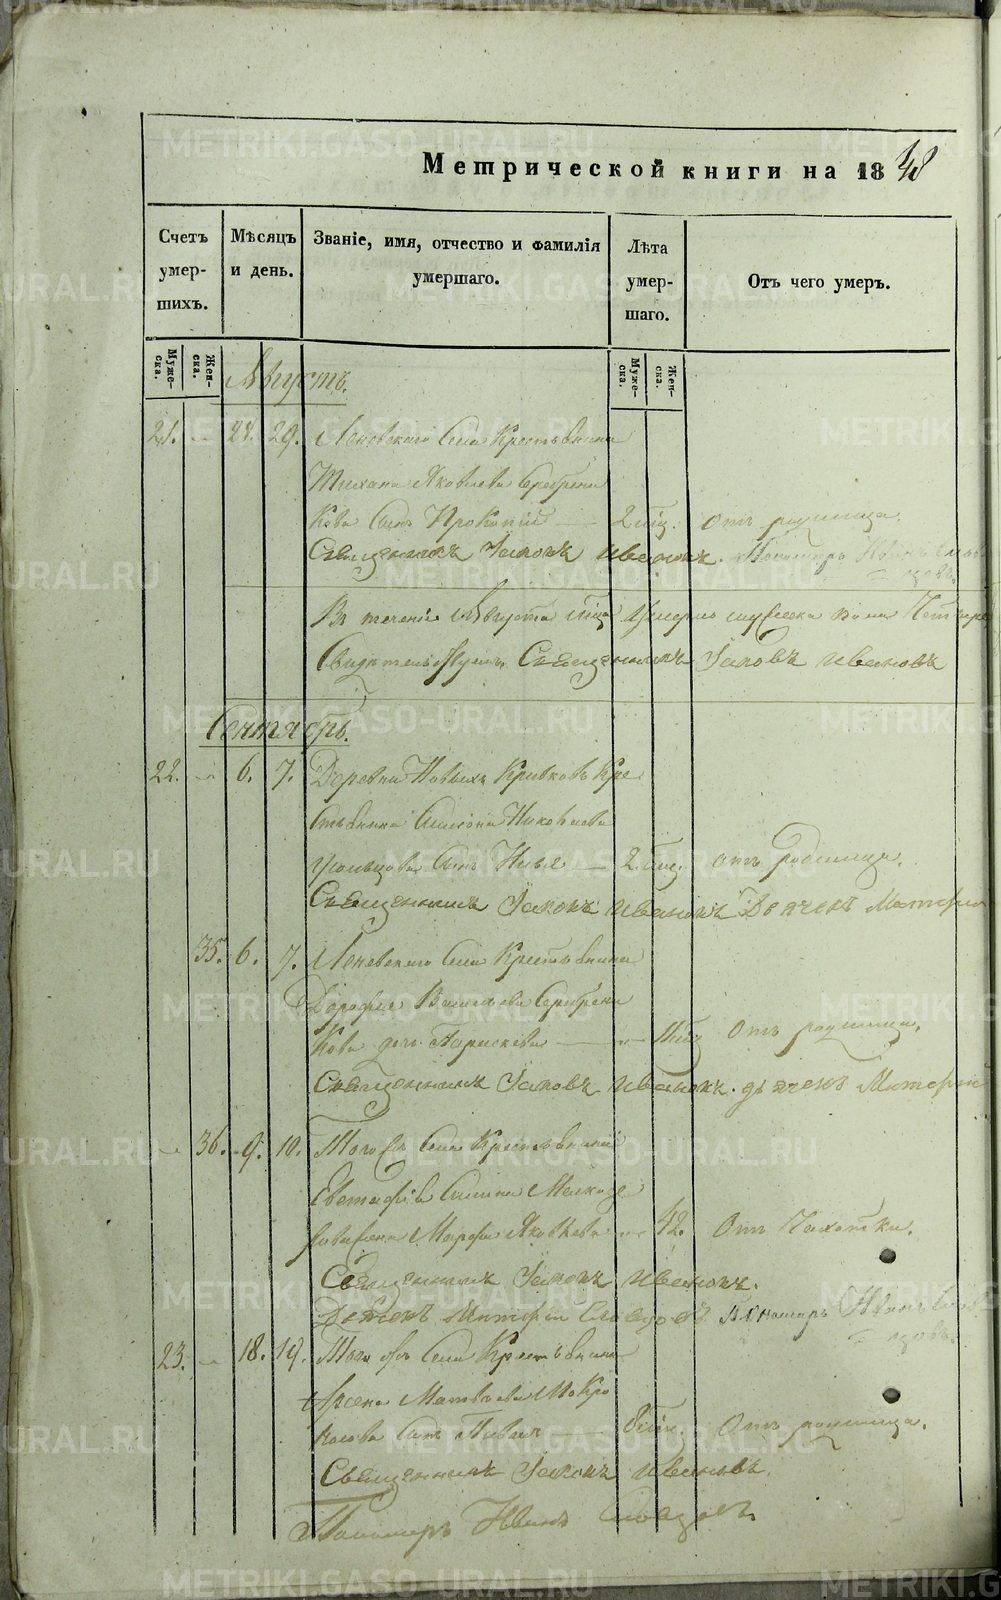 Метрической книги на 1848
Счетъ умершихъ.
Мѣсяцъ и день.
Званіе, имя, отчество и фамилія умершаго.
Лѣта умершаго.
Отъ чего умеръ.
Мужеска.
Женска.
Мужеска.
Женска.
Августъ.
21. 28. 29. Леневскаго Села Крестьянина
Тихана Яковлева Серебрени
кова Сынъ Прокопій 2 мѣц. Отъ родимца.
Священникъ Іаковъ Ивановъ. Пономарь Иванъ
Въ теченіи Августа мѣца Умерло мужеска пола
Свидѣтельствуемъ Священникъ Іаковъ Ивановъ
Сентябрь.
22. 6. 7. Деревни Новыхъ Кривковъ Кре
стьянина Симеона Николаева
Усольцова Сынъ Илья 2 мѣц. отъ родимца.
Священникъ Іаковъ Ивановъ Дьячекъ
35. 6. 7. Леневскаго Села Крестьянина
Дорофея Васильева Серебрени
кова дочь Параскева мѣц Отъ родимца.
Священникъ Іаковъ Ивановъ. дьячекъ
36. 9. 10. Того жъ Села Крестьянина
Евстафія
Марфа Яковлева 42. Отъ Чахотки.
Священникъ Іаковъ Ивановъ.
Дьячекъ Словцовъ Пономарь Иванъ Словцовъ
23. 18. 19. Того жъ Села Крестьянина
Арсена Матвѣева Мокро
носова Сынъ Павелъ мѣц. Отъ родимца.
Священникъ Іаковъ Ивановъ.
Пономарь Иванъ Словцовъ.
METRIKI.GASO-URAL.RU